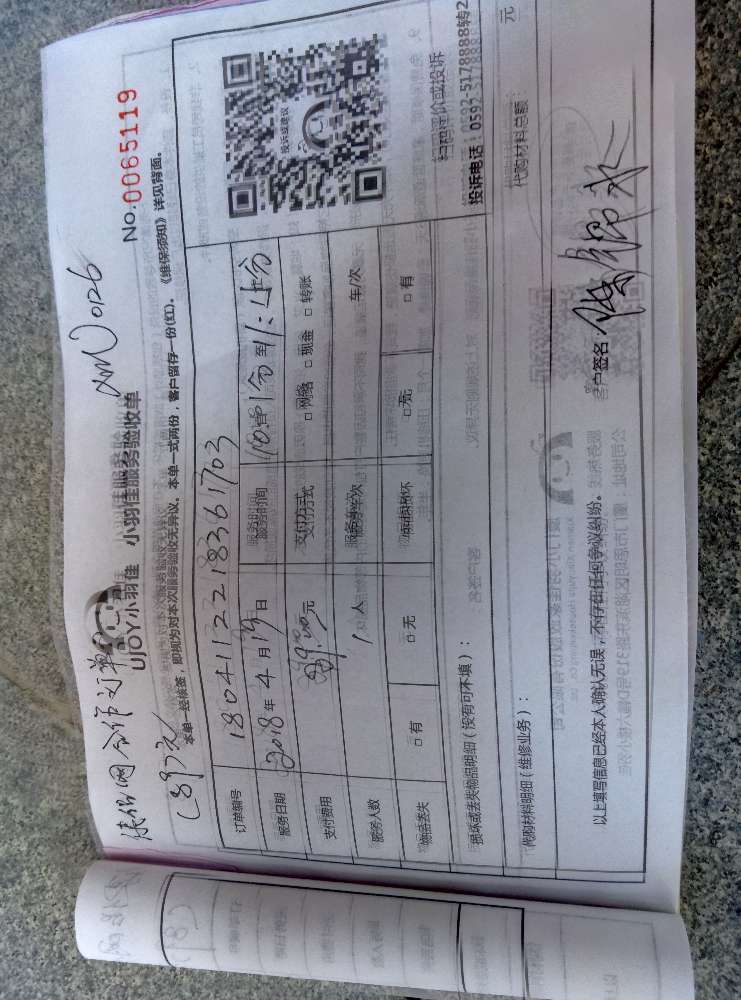 XMN0126
No.0065119
UJOY小羽佳 小羽佳服务验收单
本单一经核签，即视为对本次服务验收无异议。本单一式两份，客户留存一份(红)。《维保须知》详见背面。
订单编号 1804112218361703
服务日期 2018年4月19日 服务时间 分至
支付费用 89.00元 支付方式 □网络 □现金 □转账
服务人数 1人 服务车次 车/次
物品丢失 □有 □无 物品损坏 □无 □有
投诉或建议
扫码评价或投诉
投诉电话：0592-5178888转2
损坏或丢失物品明细（按有可不填）：
代购材料明细（维修业务）： 代购材料总额： 元
以上填写信息已经本人确认无误，不存在任何争议纠纷。 客户签名：